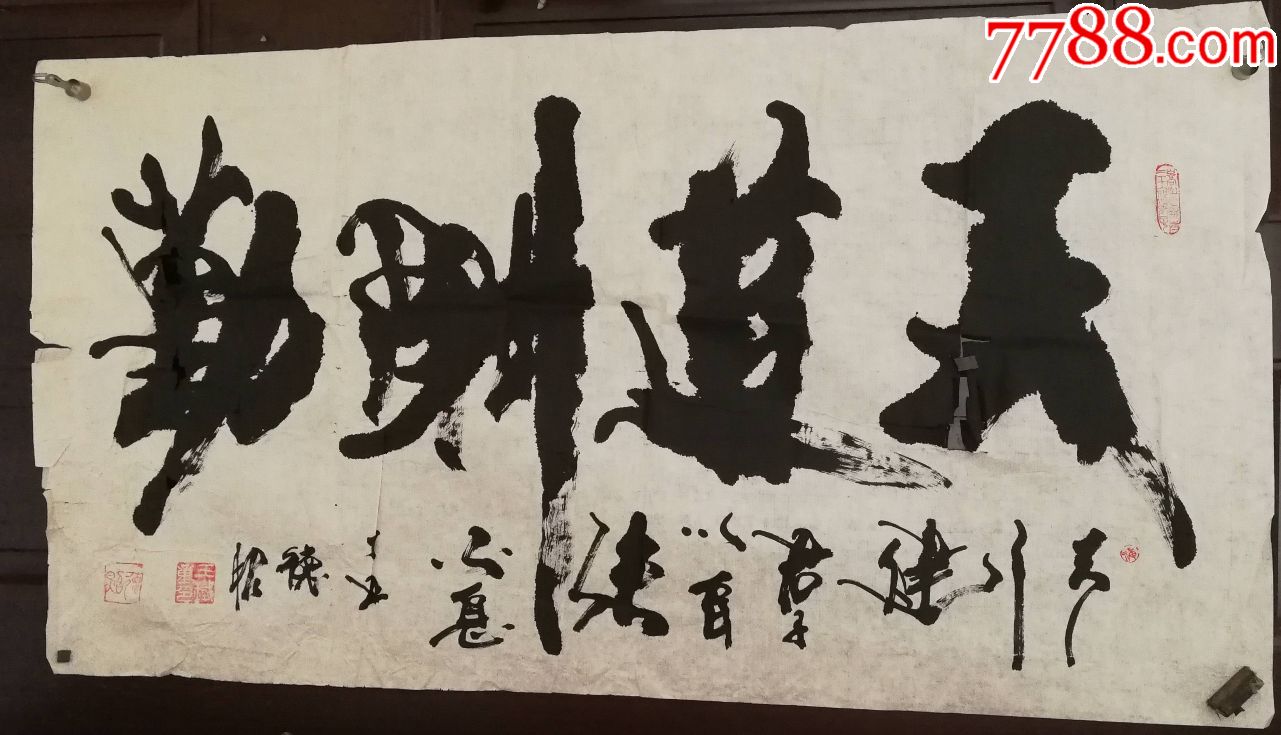 7788.com
天道酬勤
天行健君子以自強不息
德昭